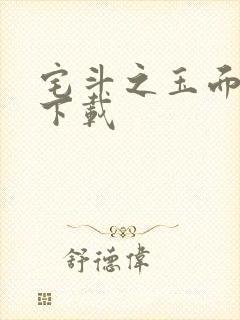 宅斗之玉而
下載
舒德偉